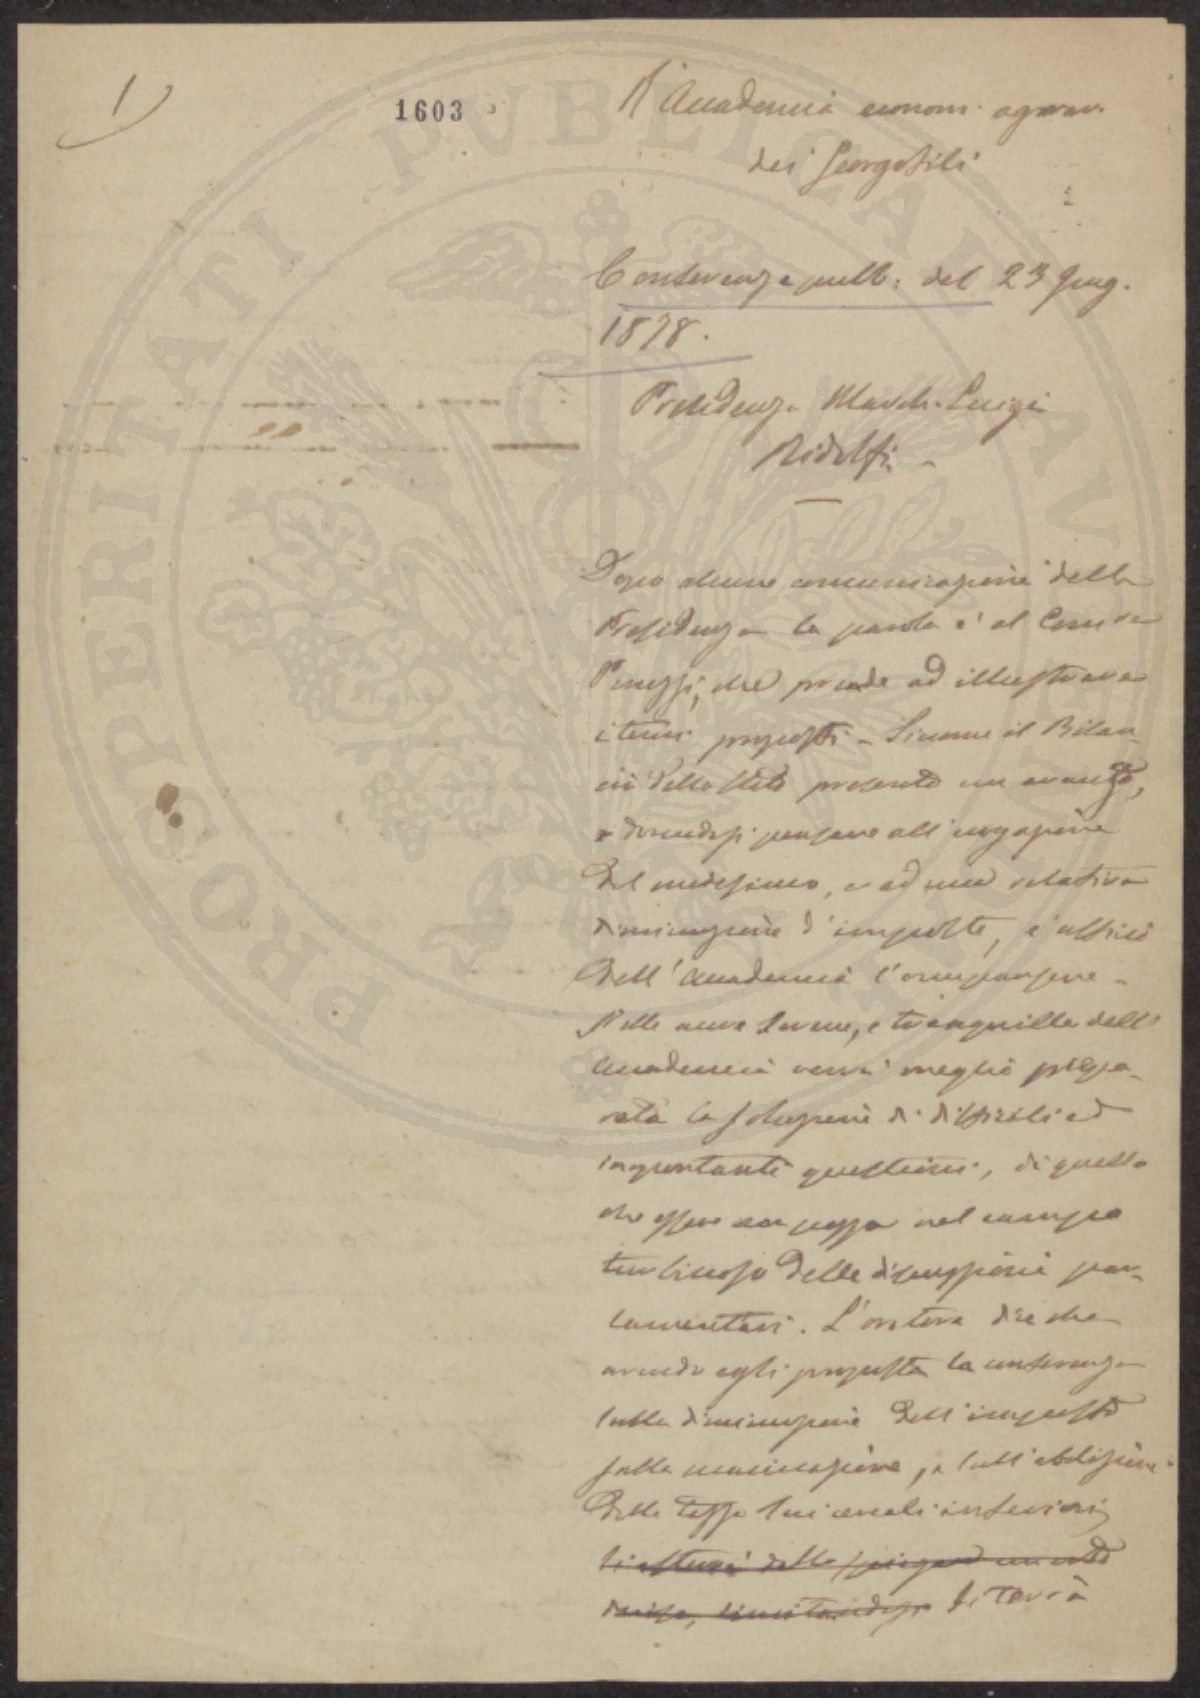 1)
1603
R. Accademia econom. agrar.
dei Georgofili
Conferenza pubb: del 23 Giug.
1878.
Presidenza March. Luigi
Ridolfi -
Dopo alcune comunicazioni della
Presidenza la parola è al Comm.
che prende ad illustrare
i temi proposti - Siccome il Bilan-
cio dello Stato presenta un avanzo,
e dovendosi pensare all'erogazione
del medesimo, e ad una relativa
diminuzione d'imposte, è ufficio
dell'Accademia l'occuparsene -
Nelle aure serene, e tranquille dell'
Accademia verrà meglio prepa-
rata la soluzione di difficili ed
importanti questioni, di quello
che esser non possa nel campo
turbinoso delle discussioni par-
lamentari. L'oratore dice che
avendo egli proposta la conferenza
sulla diminuzione dell'imposta
sulla macinazione, e sull'abolizione
della tassa sui cereali inferiori,
si della un
si terrà
PROSPERITATI PVBLICAE AVGENDAE